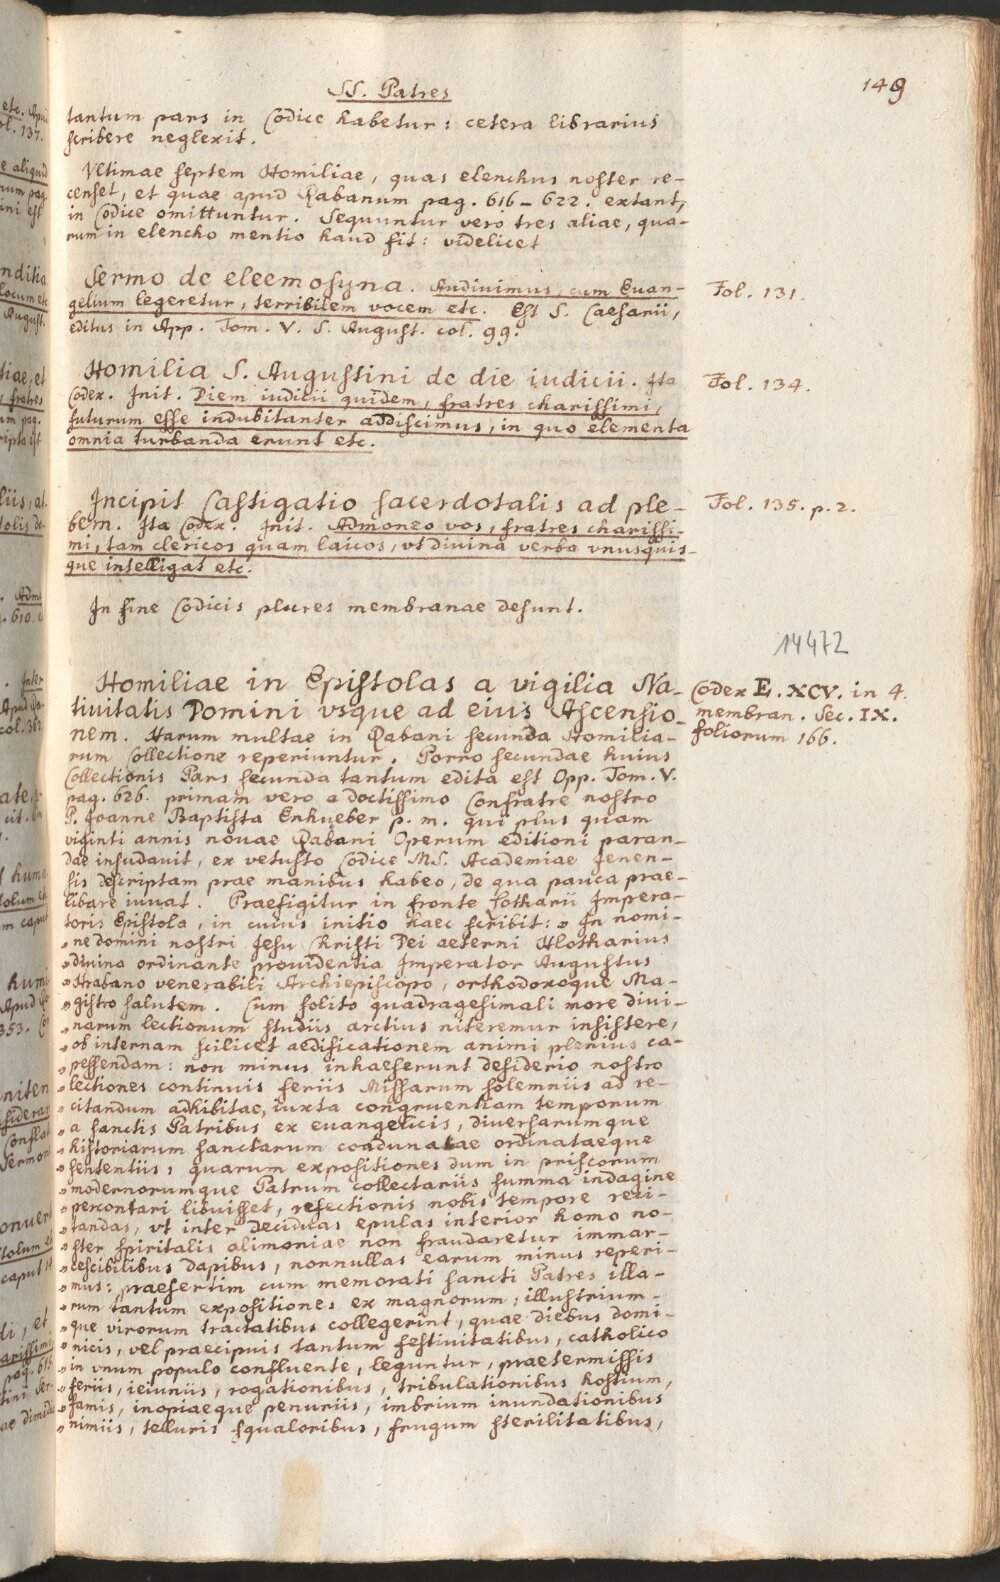 SS. Patres
149
tantum pars in Codice habetur: cetera librarius
scribere neglexit.
Vltimae septem Homiliae, quas elenchus noster re-
censet, et quae apud Rabanum pag. 616-622. extant,
in Codice omittuntur. Sequuntur vero tres aliae, qua-
rum in elencho mentio haud fit: videlicet
Sermo de eleemosyna. Audiuimus, cum Euan-
gelium legeretur, terribilem vocem etc. Est S. Caesarii,
editus in App. Tom. V. S. August. col. 99.
Fol. 131.
Homilia S. Augustini de die iudicii. Ita
Codex. Init. Diem iudicii quidem, fratres charissimi,
futurum esse indubitanter addiscimus, in quo elementa
omnia turbanda erunt etc.
Fol. 134.
Incipit Castigatio sacerdotalis ad ple-
bem. Ita Codex. Init. Admoneo vos, fratres charissi-
mi, tam clericos quam laicos, vt divina verba vnusquis-
que intelligat etc.
Fol. 135. p. 2.
In fine Codicis plures membranae desunt.
14472
Homiliae in Epistolas a vigilia Na-
tiuitatis Domini vsque ad eius Ascensio-
nem. Harum multae in Rabani secunda Homilia-
rum Collectione reperiuntur. Porro secundae huius
Collectionis Pars secunda tantum edita est Opp. Tom. V.
pag. 626. primam vero a doctissimo Confratre nostro
P. Joanne Baptista Enhueber p. m. qui plus quam
viginti annis nouae Rabani Operum editioni paran-
dae insudauit, ex vetusto Codice MS. Academiae Jenen-
sis descriptam prae manibus habeo, de qua pauca prae-
libare iuuat. Praefigitur in fronte Lotharii Impera-
toris Epistola, in cuius initio haec scribit: „ In nomi-
„ ne domini nostri Jesu Christi Dei aeterni Hlotharius
„ diuina ordinante prouidentia Imperator Augustus
„ Hrabano venerabili Archiepiscopo, orthodoxoque Ma-
„ gistro salutem. Cum solito quadragesimali more diui-
„ narum lectionum studiis arctius niteremur insistere,
„ ob internam scilicet aedificationem animi plenius ca-
„ pessendam: non minus inhaeserunt desiderio nostro
„ lectiones continuis feriis Missarum solemniis ad re-
„ citandum adhibitae, iuxta congruentiam temporum
„ a sanctis Patribus ex euangelicis, diuersarumque
„ historiarum sanctarum coadunatae ordinataeque
„ sententiis: quarum expositiones dum in priscorum
„ modernorumque Patrum collectariis summa indagine
„ percontari libuisset, refectionis nobis tempore reci-
„ tandas, vt inter deciduas epulas interior homo no-
„ ster spiritalis alimoniae non fraudaretur immar-
„ cescibilibus dapibus, nonnullas earum minus reperi-
„ mus: praesertim cum memorati sancti Patres illa-
„ rum tantum expositiones ex magnorum, illustrium-
„ que virorum tractatibus collegerint, quae diebus domi-
„ nicis, vel praecipuis tantum festiuitatibus, catholico
„ in vnum populo confluente, leguntur, praetermissis
„ feriis, ieiuniis, rogationibus, tribulationibus hostium,
„ famis, inopiaeque penuriis, imbrium inundationibus
„ nimiis, telluris squaloribus, frugum sterilitatibus,
Codex E. XCV. in 4.
membran. Sec. IX.
foliorum 166.